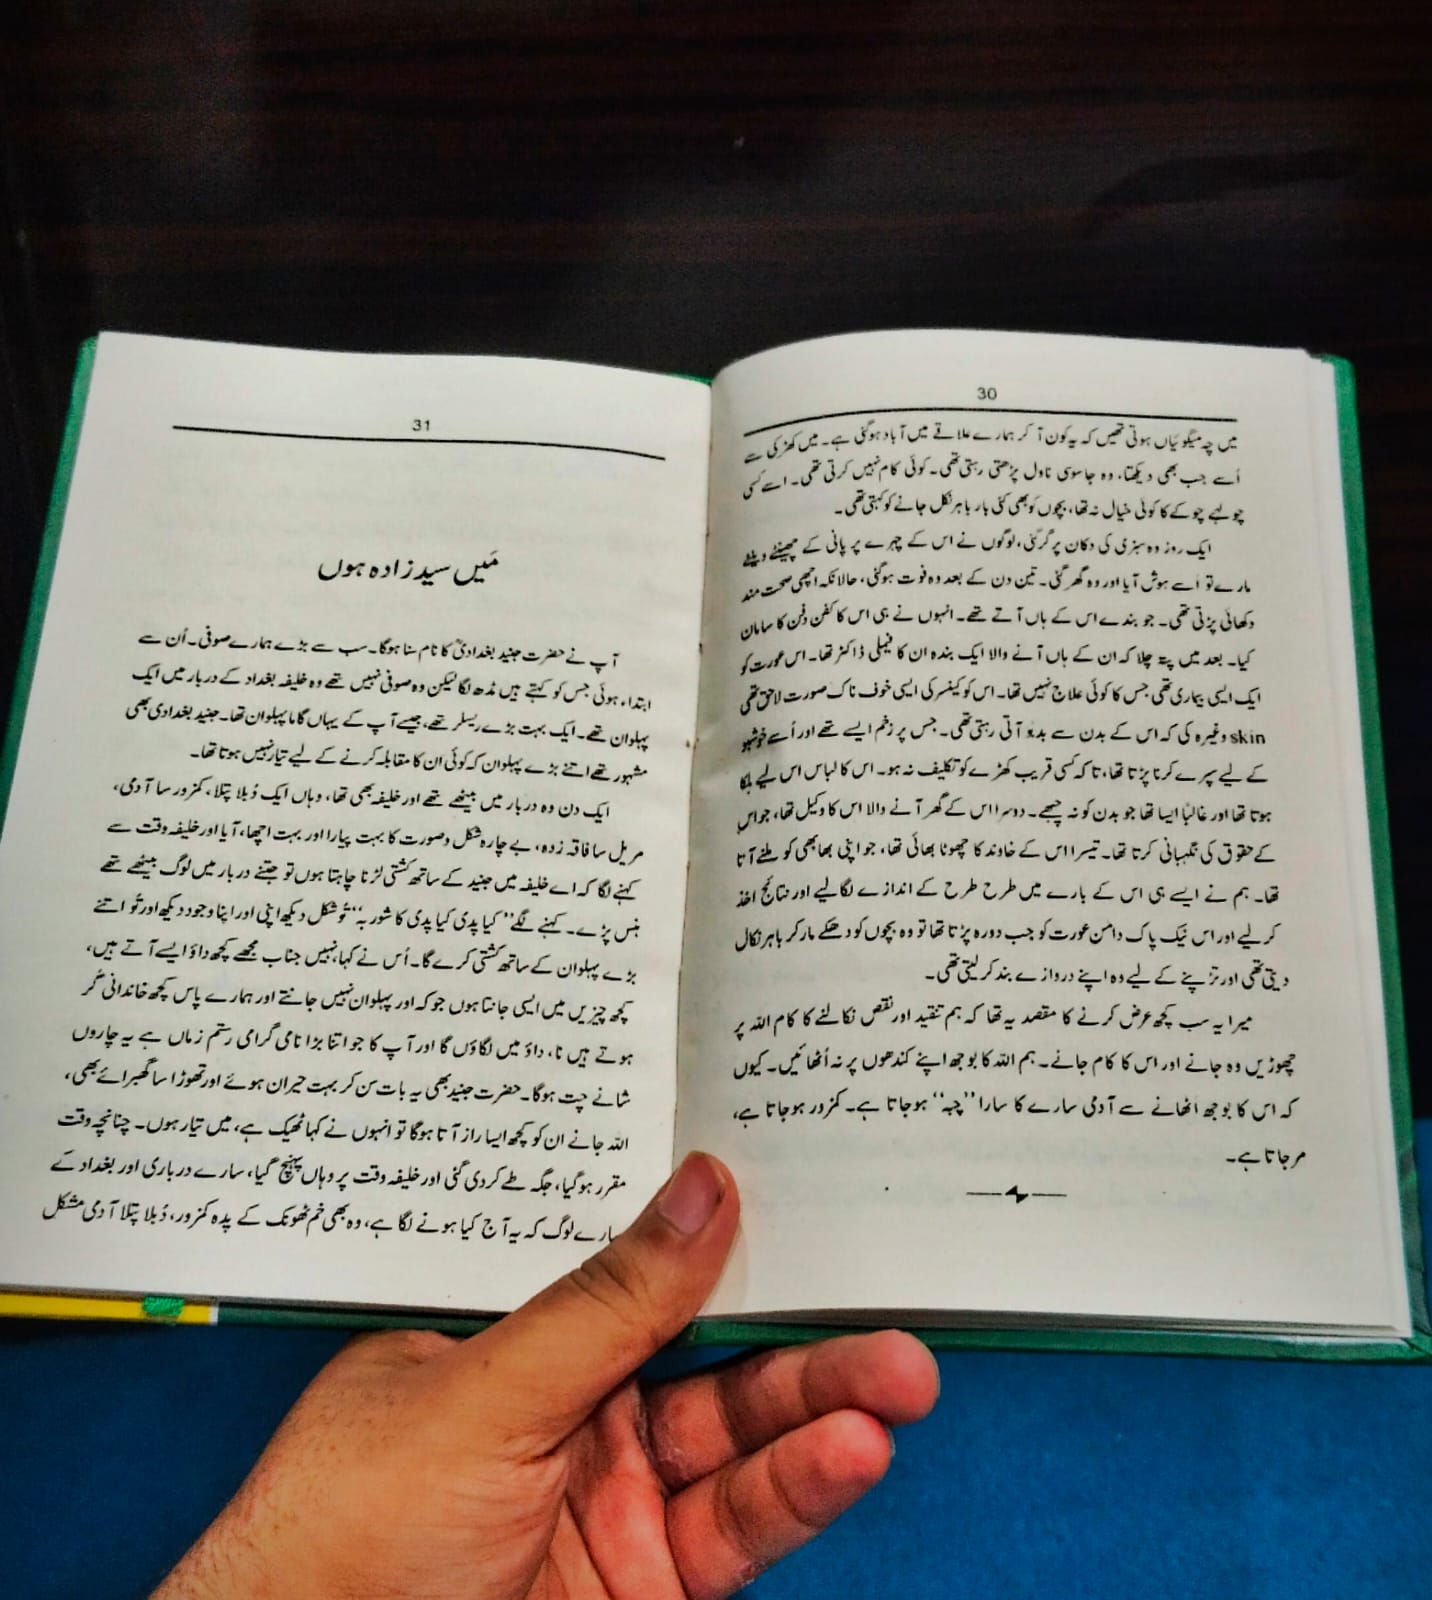 30
میں چہ میگوئیاں ہوتی تھیں کہ یہ کون آ کر ہمارے علاقے میں آباد ہوگئی ہے۔ میں کھڑکی سے
اُسے جب بھی دیکھتا، وہ جاسوسی ناول پڑھتی رہتی تھی۔ کوئی کام نہیں کرتی تھی۔ اسے کسی
چولہے چوکے کا کوئی خیال نہ تھا، بچوں کو بھی کئی بار باہر نکل جانے کو کہتی تھی۔
ایک روز وہ سبزی کی دکان پر گر گئی، لوگوں نے اس کے چہرے پر پانی کے چھینٹے وینٹے
مارے تو اُسے ہوش آیا اور وہ گھر گئی۔ تین دن کے بعد وہ فوت ہوگئی، حالانکہ اچھی صحت مند
دکھائی پڑتی تھی۔ جو بندے اس کے ہاں آتے تھے۔ انہوں نے ہی اس کا کفن دفن کا سامان
کیا۔ بعد میں پتہ چلا کہ ان کے ہاں آنے والا ایک بندہ ان کا فیملی ڈاکٹر تھا۔ اس عورت کو
ایک ایسی بیماری تھی جس کا کوئی علاج نہیں تھا۔ اس کو کینسر کی ایسی خوف ناک صورت لاحق تھی
skin وغیرہ کی کہ اس کے بدن سے بدبو آتی رہتی تھی۔ جس پر زخم ایسے تھے اور اُسے خوشبو
کے لیے سپرے کرنا پڑتا تھا، تاکہ کسی قریب کھڑے کو تکلیف نہ ہو۔ اس کا لباس اس لیے ہلکا
ہوتا تھا اور غالباً ایسا تھا جو بدن کو نہ چبھے۔ دوسرا اس کے گھر آنے والا اس کا وکیل تھا، جو اس
کے حقوق کی نگہبانی کرتا تھا۔ تیسرا اس کے خاوند کا چھوٹا بھائی تھا، جو اپنی بھابھی کو ملنے آتا
تھا۔ ہم نے ایسے ہی اس کے بارے میں طرح طرح کے اندازے لگا لیے اور نتائج اخذ
کر لیے اور اس نیک پاک دامن عورت کو جب دورہ پڑتا تھا تو وہ بچوں کو دھکے مار کر باہر نکال
دیتی تھی اور تڑپنے کے لیے وہ اپنے دروازے بند کر لیتی تھی۔
میرا یہ سب کچھ عرض کرنے کا مقصد یہ تھا کہ ہم تنقید اور نقص نکالنے کا کام اللہ پر
چھوڑیں وہ جانے اور اس کا کام جانے۔ ہم اللہ کا بوجھ اپنے کندھوں پر نہ اُٹھائیں۔ کیوں
کہ اس کا بوجھ اٹھانے سے آدمی سارے کا سارا ”چبہ“ ہو جاتا ہے۔ کمزور ہو جاتا ہے،
مر جاتا ہے۔
31
مَیں سید زادہ ہوں
آپ نے حضرت جنید بغدادیؒ کا نام سنا ہوگا۔ سب سے بڑے ہمارے صوفی۔ اُن سے
ابتداء ہوئی جس کو کہتے ہیں مُڈھ لگا لیکن وہ صوفی نہیں تھے وہ خلیفہ بغداد کے دربار میں ایک
پہلوان تھے۔ ایک بہت بڑے ریسلر تھے، جیسے آپ کے یہاں گاما پہلوان تھا۔ جنید بغدادی بھی
مشہور تھے اتنے بڑے پہلوان کہ کوئی ان کا مقابلہ کرنے کے لیے تیار نہیں ہوتا تھا۔
ایک دن وہ دربار میں بیٹھے تھے اور خلیفہ بھی تھا، وہاں ایک دُبلا پتلا، کمزور سا آدمی،
مریل سا فاقہ زدہ، بے چارہ شکل و صورت کا بہت پیارا اور بہت اچھا، آیا اور خلیفہ وقت سے
کہنے لگا کہ اے خلیفہ میں جنید کے ساتھ کشتی لڑنا چاہتا ہوں تو جتنے دربار میں لوگ بیٹھے تھے
ہنس پڑے۔ کہنے لگے ”کیا پدی کیا پدی کا شوربہ“ تُو شکل دیکھ اپنی اور اپنا وجود دیکھ اور تُو اتنے
بڑے پہلوان کے ساتھ کشتی کرے گا۔ اُس نے کہا، نہیں جناب مجھے کچھ داؤ ایسے آتے ہیں،
کچھ چیزیں میں ایسی جانتا ہوں جو کہ اور پہلوان نہیں جانتے اور ہمارے پاس کچھ خاندانی گُر
ہوتے ہیں نا، داؤ میں لگاؤں گا اور آپ کا جو اتنا بڑا نامی گرامی رستم زماں ہے یہ چاروں
شانے چت ہوگا۔ حضرت جنید بھی یہ بات سن کر بہت حیران ہوئے اور تھوڑا سا گھبرائے بھی،
اللہ جانے ان کو کچھ ایسا راز آتا ہوگا تو انہوں نے کہا ٹھیک ہے، میں تیار ہوں۔ چنانچہ وقت
مقرر ہوگیا، جگہ طے کر دی گئی اور خلیفہ وقت پر وہاں پہنچ گیا، سارے درباری اور بغداد کے
سارے لوگ کہ یہ آج کیا ہونے لگا ہے، وہ بھی خم ٹھونک کے پدہ کمزور، دُبلا پتلا آدمی مشکل